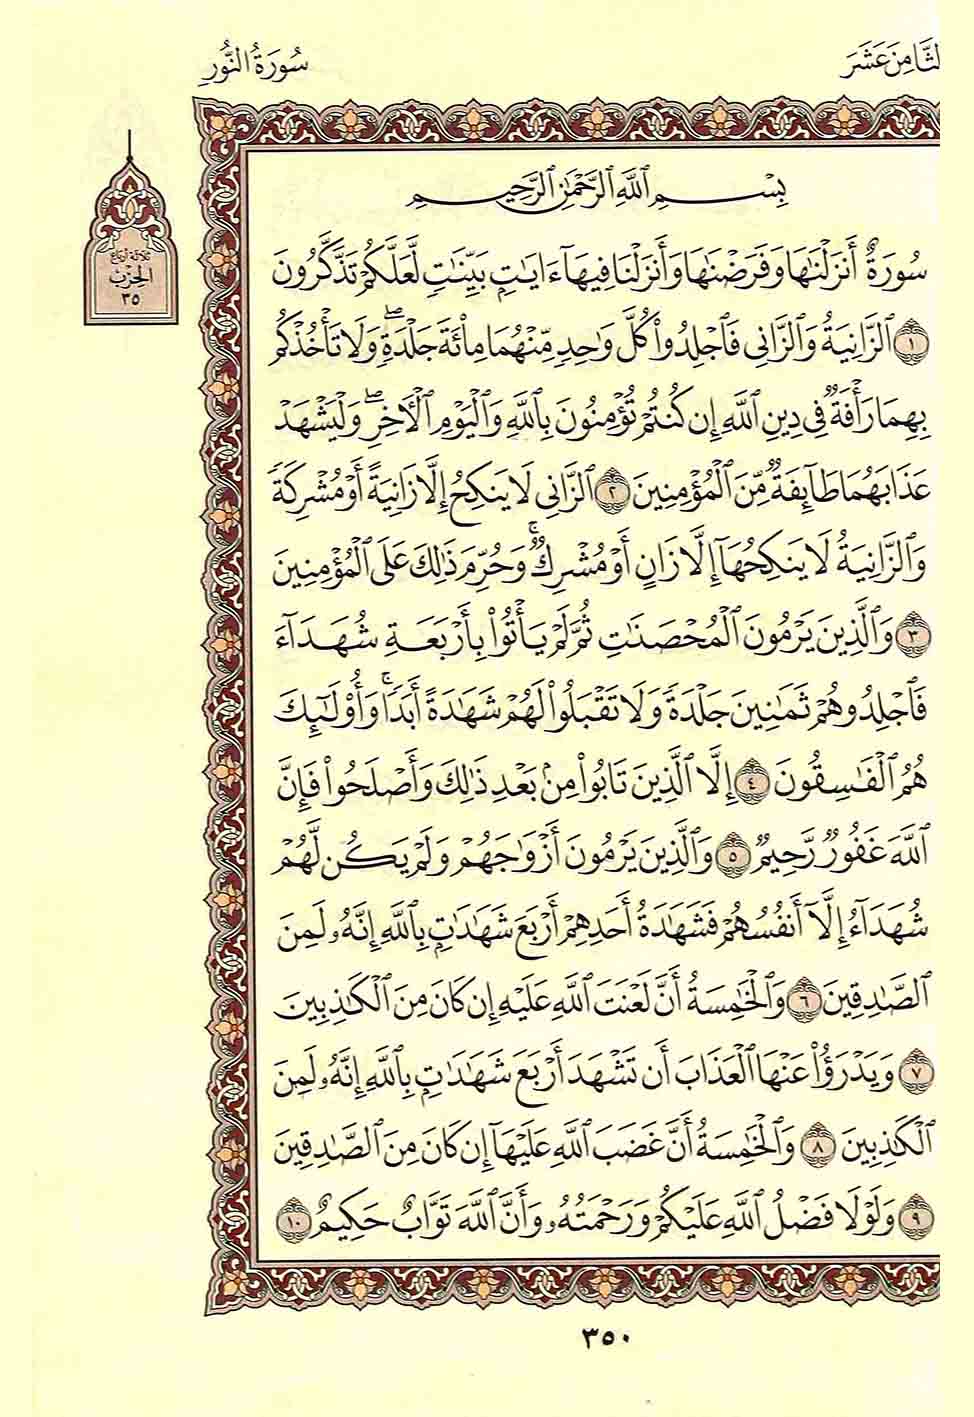 الثَّامِنَ عَشَرَ
سُورَةُ النُّورِ
ثلاثة أرباع
الحزب
٣٥
بِسۡمِ ٱللَّهِ ٱلرَّحۡمَٰنِ ٱلرَّحِيمِ
سُورَةٌ أَنزَلۡنَٰهَا وَفَرَضۡنَٰهَا وَأَنزَلۡنَا فِيهَآ ءَايَٰتِۭ بَيِّنَٰتٖ لَّعَلَّكُمۡ تَذَكَّرُونَ
١ ٱلزَّانِيَةُ وَٱلزَّانِي فَٱجۡلِدُواْ كُلَّ وَٰحِدٖ مِّنۡهُمَا مِاْئَةَ جَلۡدَةٖۖ وَلَا تَأۡخُذۡكُم
بِهِمَا رَأۡفَةٞ فِي دِينِ ٱللَّهِ إِن كُنتُمۡ تُؤۡمِنُونَ بِٱللَّهِ وَٱلۡيَوۡمِ ٱلۡأٓخِرِۖ وَلۡيَشۡهَدۡ
عَذَابَهُمَا طَآئِفَةٞ مِّنَ ٱلۡمُؤۡمِنِينَ ٢ ٱلزَّانِي لَا يَنكِحُ إِلَّا زَانِيَةً أَوۡ مُشۡرِكَةٗ
وَٱلزَّانِيَةُ لَا يَنكِحُهَآ إِلَّا زَانٍ أَوۡ مُشۡرِكٞۚ وَحُرِّمَ ذَٰلِكَ عَلَى ٱلۡمُؤۡمِنِينَ
٣ وَٱلَّذِينَ يَرۡمُونَ ٱلۡمُحۡصَنَٰتِ ثُمَّ لَمۡ يَأۡتُواْ بِأَرۡبَعَةِ شُهَدَآءَ
فَٱجۡلِدُوهُمۡ ثَمَٰنِينَ جَلۡدَةٗ وَلَا تَقۡبَلُواْ لَهُمۡ شَهَٰدَةً أَبَدٗاۚ وَأُوْلَٰٓئِكَ
هُمُ ٱلۡفَٰسِقُونَ ٤ إِلَّا ٱلَّذِينَ تَابُواْ مِنۢ بَعۡدِ ذَٰلِكَ وَأَصۡلَحُواْ فَإِنَّ
ٱللَّهَ غَفُورٞ رَّحِيمٞ ٥ وَٱلَّذِينَ يَرۡمُونَ أَزۡوَٰجَهُمۡ وَلَمۡ يَكُن لَّهُمۡ
شُهَدَآءُ إِلَّآ أَنفُسُهُمۡ فَشَهَٰدَةُ أَحَدِهِمۡ أَرۡبَعُ شَهَٰدَٰتِۭ بِٱللَّهِ إِنَّهُۥ لَمِنَ
ٱلصَّٰدِقِينَ ٦ وَٱلۡخَٰمِسَةُ أَنَّ لَعۡنَتَ ٱللَّهِ عَلَيۡهِ إِن كَانَ مِنَ ٱلۡكَٰذِبِينَ
٧ وَيَدۡرَؤُاْ عَنۡهَا ٱلۡعَذَابَ أَن تَشۡهَدَ أَرۡبَعَ شَهَٰدَٰتِۭ بِٱللَّهِ إِنَّهُۥ لَمِنَ
ٱلۡكَٰذِبِينَ ٨ وَٱلۡخَٰمِسَةَ أَنَّ غَضَبَ ٱللَّهِ عَلَيۡهَآ إِن كَانَ مِنَ ٱلصَّٰدِقِينَ
٩ وَلَوۡلَا فَضۡلُ ٱللَّهِ عَلَيۡكُمۡ وَرَحۡمَتُهُۥ وَأَنَّ ٱللَّهَ تَوَّابٌ حَكِيمٌ ١٠
٣٥٠